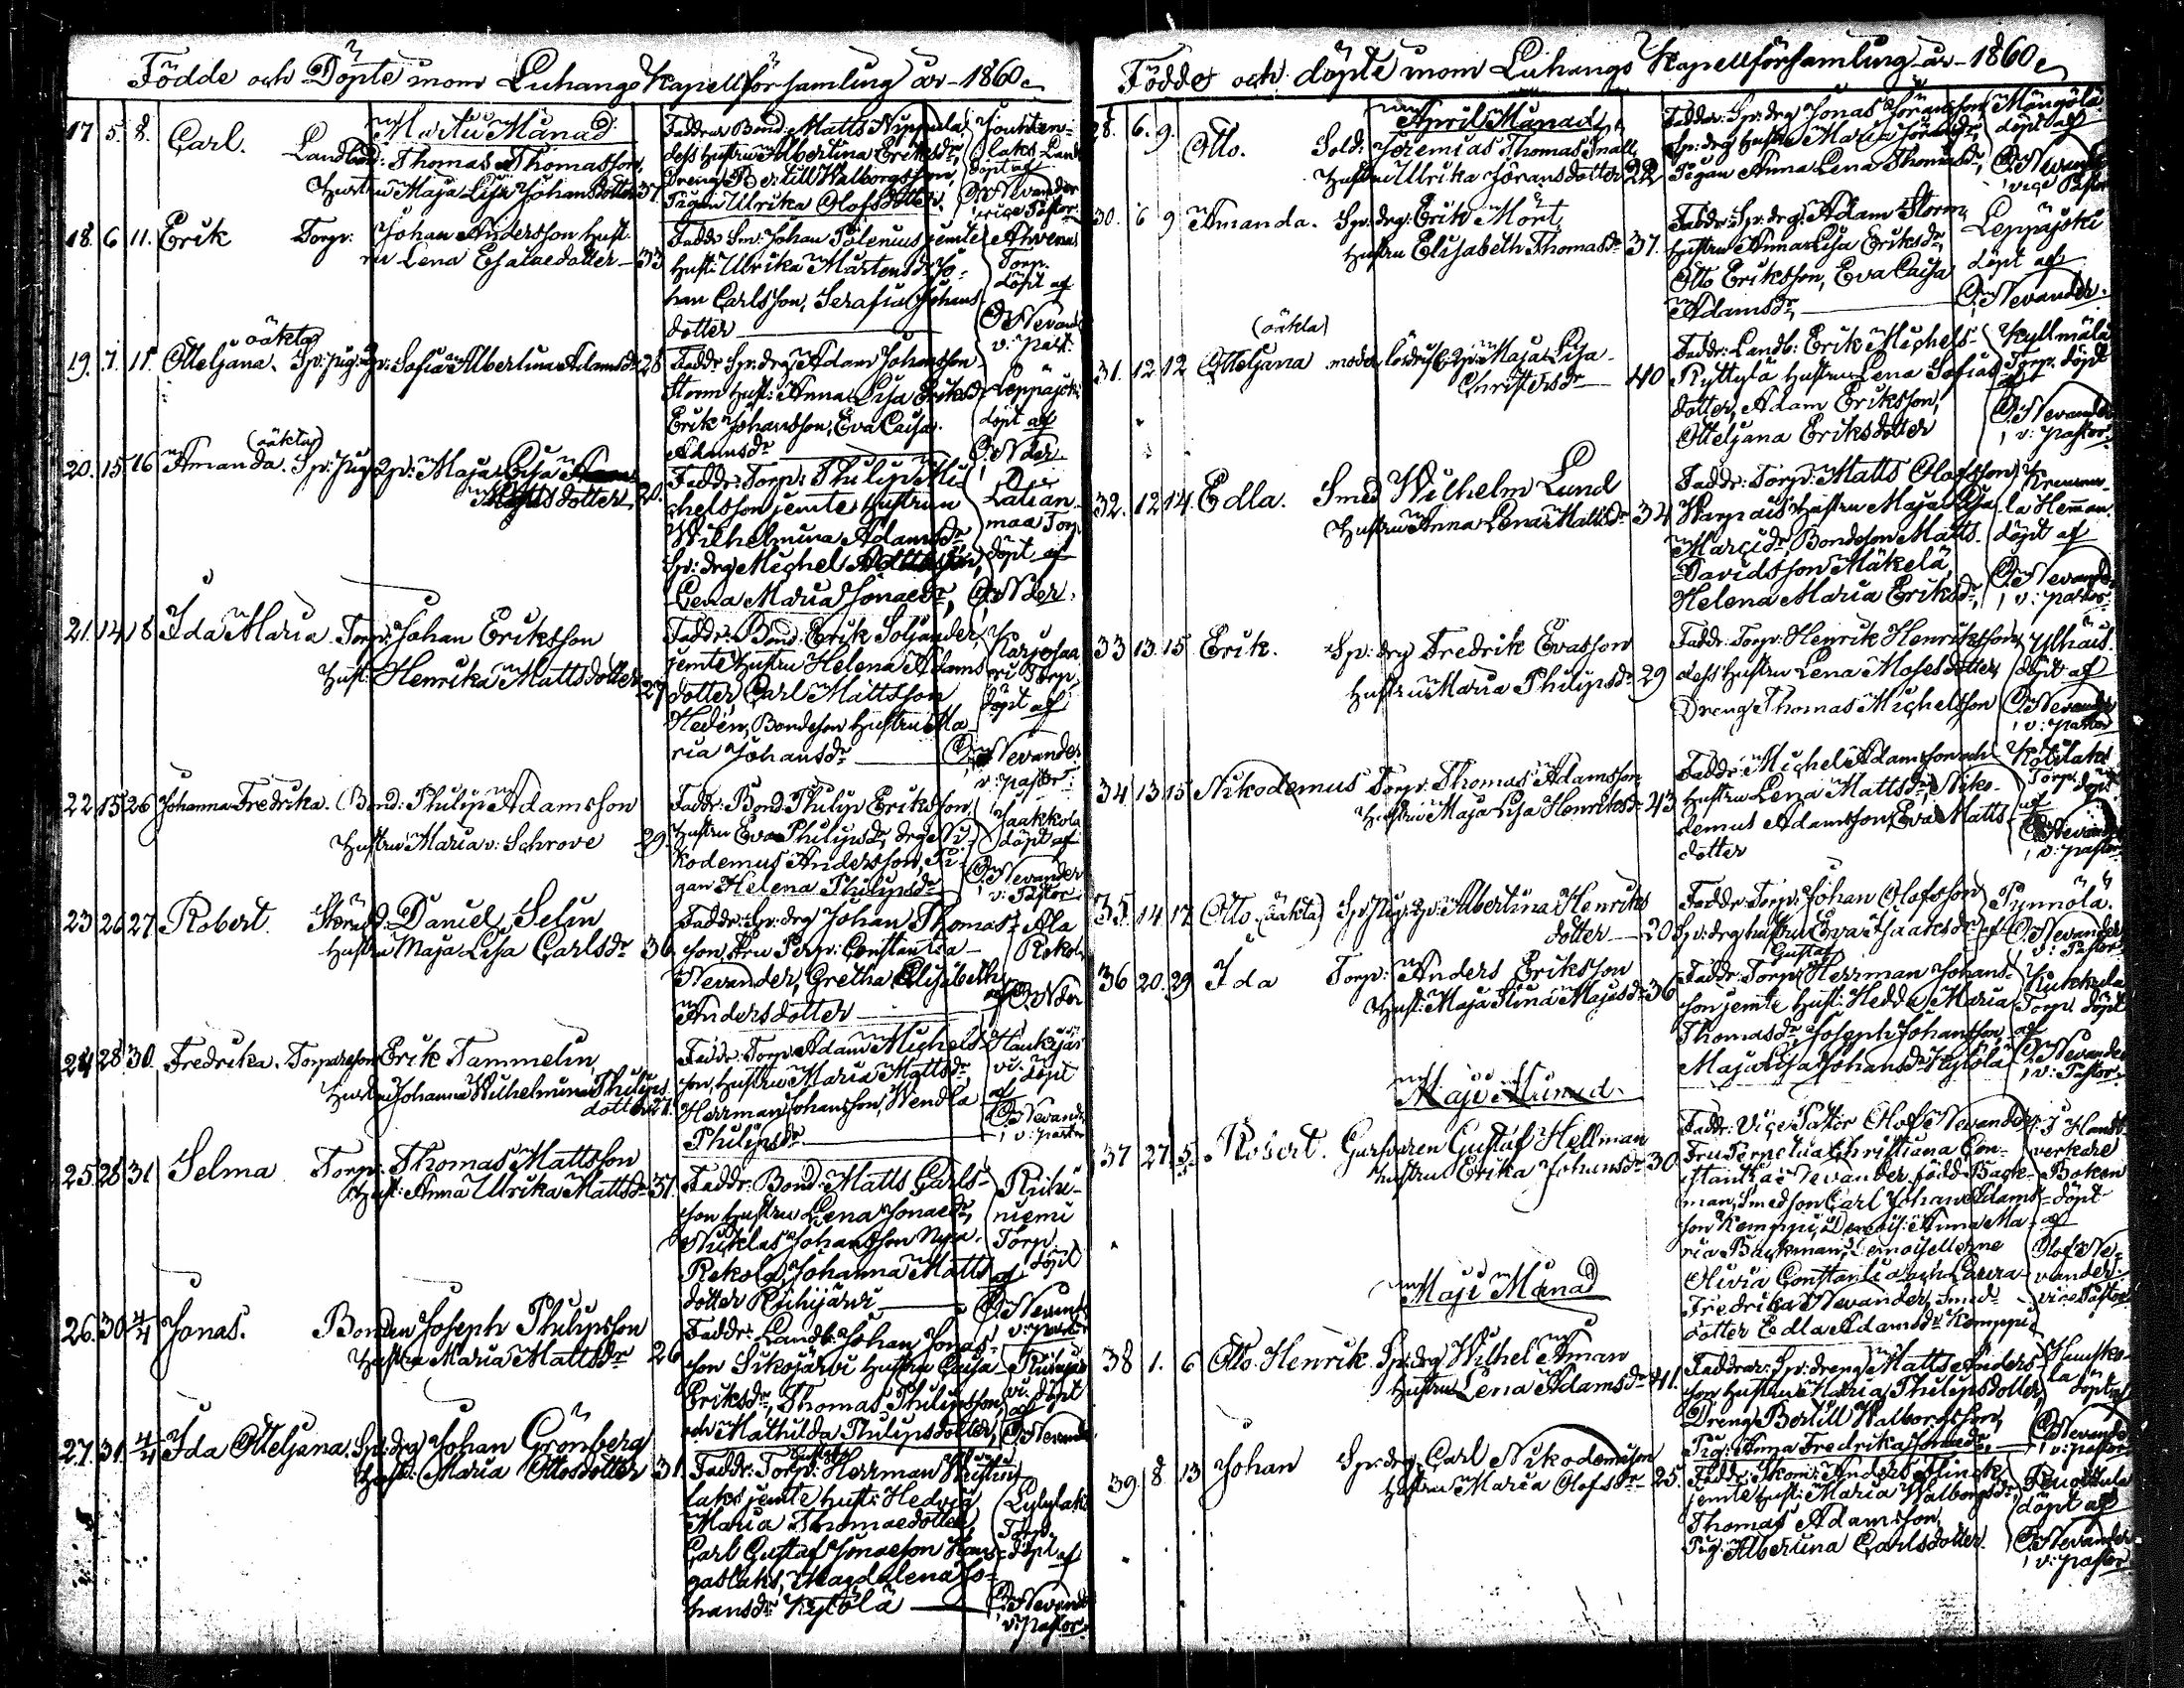 Födde och Döpte inom Luhango Kapellförsamling år 1860
Martii Månad
17 5. 8. Carl. Landbond: Thomas Thomasson,
Hustru Maja Lisa Johansdotter 37.
Faddrar Bond: Matts Nippula,
dess Hustru Albertina Eriksdr,
Dreng Bertill Walborgsson,
Pigan Ulrika Olofsdotter.
döpt af
O. Nevander
vice Pastor
18. 6 11. Erik Torp: Johan Andersson Hust
ru Lena Esaiaedotter 33
Fadd: Sm: Johan Polenius jemte
Hust: Ulrika Mårtensdr, Jo-
han Carlsson, Serafia Johans
dotter
Torp.
döpt af
O. Nevand
v: past:
19. 7. 11. oäkta
Otteljana. Sp: pig: Sofia Albertina Adamsdr 28
Fadd: Sp: drg: Adam Johansson
Storm Hust: Anna Lisa Eriksdr
Erik Johansson, Eva Caisa
Adamsdr
Leppäjoki
döpt af
O. Nder
20. 15. 16 (oäkta)
Amanda. Sp: pig: Maja Lisa
Mattsdotter 20.
Fadd: Torp: Philip Mi-
chelsson jemte Hustrun
Wilhelmina Adamsdr
Sp: drg Michel
Lena Maria Jonaedr,
maa Torp
döpt af
O. Nder.
21. 14 18 Ida Maria Torp: Johan Eriksson
Hust: Henrika Mattsdotter 27
Fadd: Bond: Erik Soljander,
jemte Hustru Helena Adams
dotter Carl Mattsson
Heden, Bondeson Hustru Ma
ria Johansdr
Karjosaa
ri Torp
döpt af
O. Nevander
v: pastor
22 15 26 Johanna Fredrika. Bond: Philip Adamsson
Hustru Maria v: Schrove 29.
Fadd: Bond Philip Eriksson,
Hustru Eva Philipsdr, drg Ni-
kodemus Andersson, Pi-
gan Helena Philipsdr
Jaakkola
döpt af
O. Nevander
v: Pastor
23 26 27 Robert. Daniel Selin
Hustru Maja Lisa Carlsdr 36
Fadd: Sp: drg Johan Thomas-
son, Fru Perp: Constantia
Nevander, Gretha Elisabeth
Andersdotter
af O. Nder
24 28 30. Fredrika. Torpareson Erik Tammelin,
Hustru Johanna Wilhelmina Philips
dotter 27.
Fadd: Torp: Adam Michels-
son, Hustru Maria Mattsdr
Herrman Johansson, Wendla
Philipsdr.
Haukijär
vi. döpt
af
O. Nevand
v: pastor
25 28 31 Selma Torp: Thomas Mattsson
Hust: Anna Ulrika Mattsdr 37.
Fadd: Bond: Matts Carls-
son Hustru Lena Jonaedr,
Nicklas Johansson Nya
Rekola, Johanna Matts
dotter
niemi
Torp
döpt
af
O. Nevand
v: pastor
26. 30 4/4 Jonas. Bonden Joseph Philipsson
Hustru Maria Mattsdr 26
Fadd: Landb: Johan Jonas-
son Sikojärvi Hustru Caisa
Eriksdr, Thomas Philipsson
och Mathilda Philipsdotter,
vi. döpt
af
O. Nevand
27. 31 4/4 Ida Otteljana. Sp: drg Johan Grönberg
Hust: Maria Ottosdotter 31
Fadd: Torp: Herrman
laks jemte hust: Hedvig
Maria Thomaedotter
Carl Gustaf Jonaeson Kan-
gaslaks, Magdalena Jo-
hansdr Kytölä
Torp.
döpt af
O. Nevand
v: pastor
Födde och döpte inom Luhango Kapellförsamling år 1860
April Månad
28. 6. 9. Otto. Sold: Jeremias Thomas Snäll,
Hustru Ulrika Göransdotter 22
Fadder: Sp: drg Jonas Göransson
Sp: drg hustru Maria
Pigan Anna Lena Thomasdr,
döpt af
O. Nevand
vice Pastor
30. 6 9 Amanda. Sp: drg: Erik Mört,
Hustru Elisabeth Thomasdr 37.
Fadd: Sp: drg: Adam Storm
Hustru Anna Lisa Eriksdr,
Otto Eriksson, Eva Caisa
Adamsdr,
Leppäjoki
döpt af
O. Nevander.
31. 12 12 (oäkta)
Otteljana Maja Lisa
Christersdr 40
Fadd: Landb: Erik Michels-
Ryttylä Hustru Lena Sofias
dotter, Adam Eriksson,
Otteljana Eriksdotter
Kyllmälä
Torp. döpt
af
O. Nevander
v: pastor
32. 12 14. Edla. Smed Wilhelm Lund
Hustru Anna Lena Mattsdr 34
Fadd: Torp: Matts Olofsson
Hustru Maja Lisa
Bondeson Matts
Davidsson Mäkelä,
Helena Maria Eriksdr,
la Hemman.
döpt af
O. Nevand
v: pastor
33 13. 15. Erik. Sp: drg Fredrik Evasson
Hustru Maria Philipsdr 29
Fadd: Torp: Henrik Henriksson
dess Hustru Lena Mosesdotter,
Dreng Thomas Michelsson
döpt af
O. Nevander
v: pastor
34 13 15 Nikodemus Torp: Thomas Adamsson,
Hustru Maja Lisa Henriksdr 43
Fadd: Michel Adamsson och
Hustru Lena Mattsdr, Niko-
demus Adamsson, Eva Matts
dotter
Kotilaks
Torp. döpt
af
O. Nevander
v: pastor
35. 14 17 Otto (oäkta) Sp: pig: Albertina Henriks
dotter 20
Fadd: Torp: Johan Olofsson
Sp: drg hustru Eva Isaaksdr
Pynnölä.
af O. Nevander
v: Pastor
36 20. 29 Ida Torp: Anders Eriksson
Hust: Maja Stina Majasdr 36
Gustaf
Fadd: Torp: Herrman Johans-
son jemte Hust: Hedda Maria
Thomasdr, Joseph Johansson,
Maja Lisa Johansdr Kytölä
Kukkula
Torp. döpt
af
O. Nevander
v: Pastor
Maji Månad.
37 27. 5. Robert. Garfvaren Gustaf Hellman
Hustru Erika Johansdr 30
Fadd: Vice Pastor Olof Nevander,
Fru Perpetua Christiana Con-
stantia Nevander född Back-
man, Smedson Carl Johan Adams-
son Kemppi, Demois: Anna Ma-
ria Backman, Demoisellerne
Olivia Constantia och Laura
Fredrika Nevander, Smed-
dotter Edla Adamsdr Kemppi
verkare
Boken
döpt
af
Olof Ne-
vander.
vice Pastor
Maji Månad
38 1. 6 Otto Henrik. Sp: drg Wilhel Åman
Hustru Lena Adamsdr 41.
Faddrar: Sp: dreng Matts Anders-
son hustru Maria Philipsdotter,
Dreng Bertill Walborgsson,
Pig: Anna Fredrika Jonaedr,
döpt af
O. Nevand
v: pastor
39. 8 13 Johan Sp: drg Carl Nikodemusson
Hustru Maria Olofsdr 25.
Fadd: Skom: Anders Flinck
jemte hust: Maria Walborgsdr
Thomas Adamsson,
Pig: Albertina Carlsdotter.
döpt af
O. Nevander
v: pastor